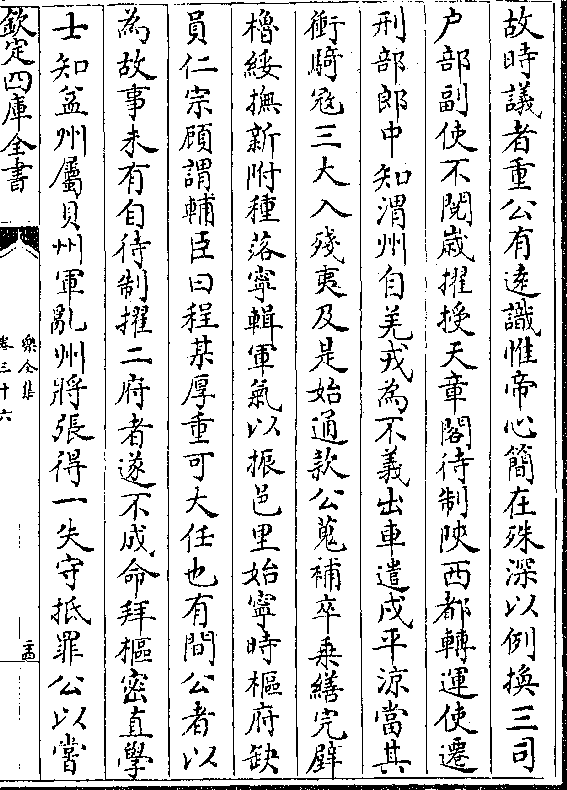 故時議者重公有逺識惟帝心簡在殊深以例換三司
户部副使不閱嵗擢授天章閣待制陜西都轉運使遷
刑部郎中知渭州自羌戎為不義出車遣戍平凉當其
衝騎冦三大入殘夷及是始通款公蒐補卒乗繕完壁
櫓綏撫新附種落寧輯軍氣以振邑里始寧時樞府缺
員仁宗顧謂輔臣曰程某厚重可大任也有間公者以
為故事未有自待制擢二府者遂不成命拜樞密直學
士知益州屬貝州軍亂州將張得一失守抵罪公以嘗
欽定四庫全書
樂全集
卷三十六